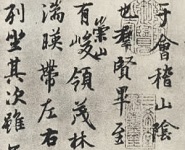 于會稽山陰
也羣賢畢至
有崇山峻領茂林
湍暎帶左右
列坐其次雖